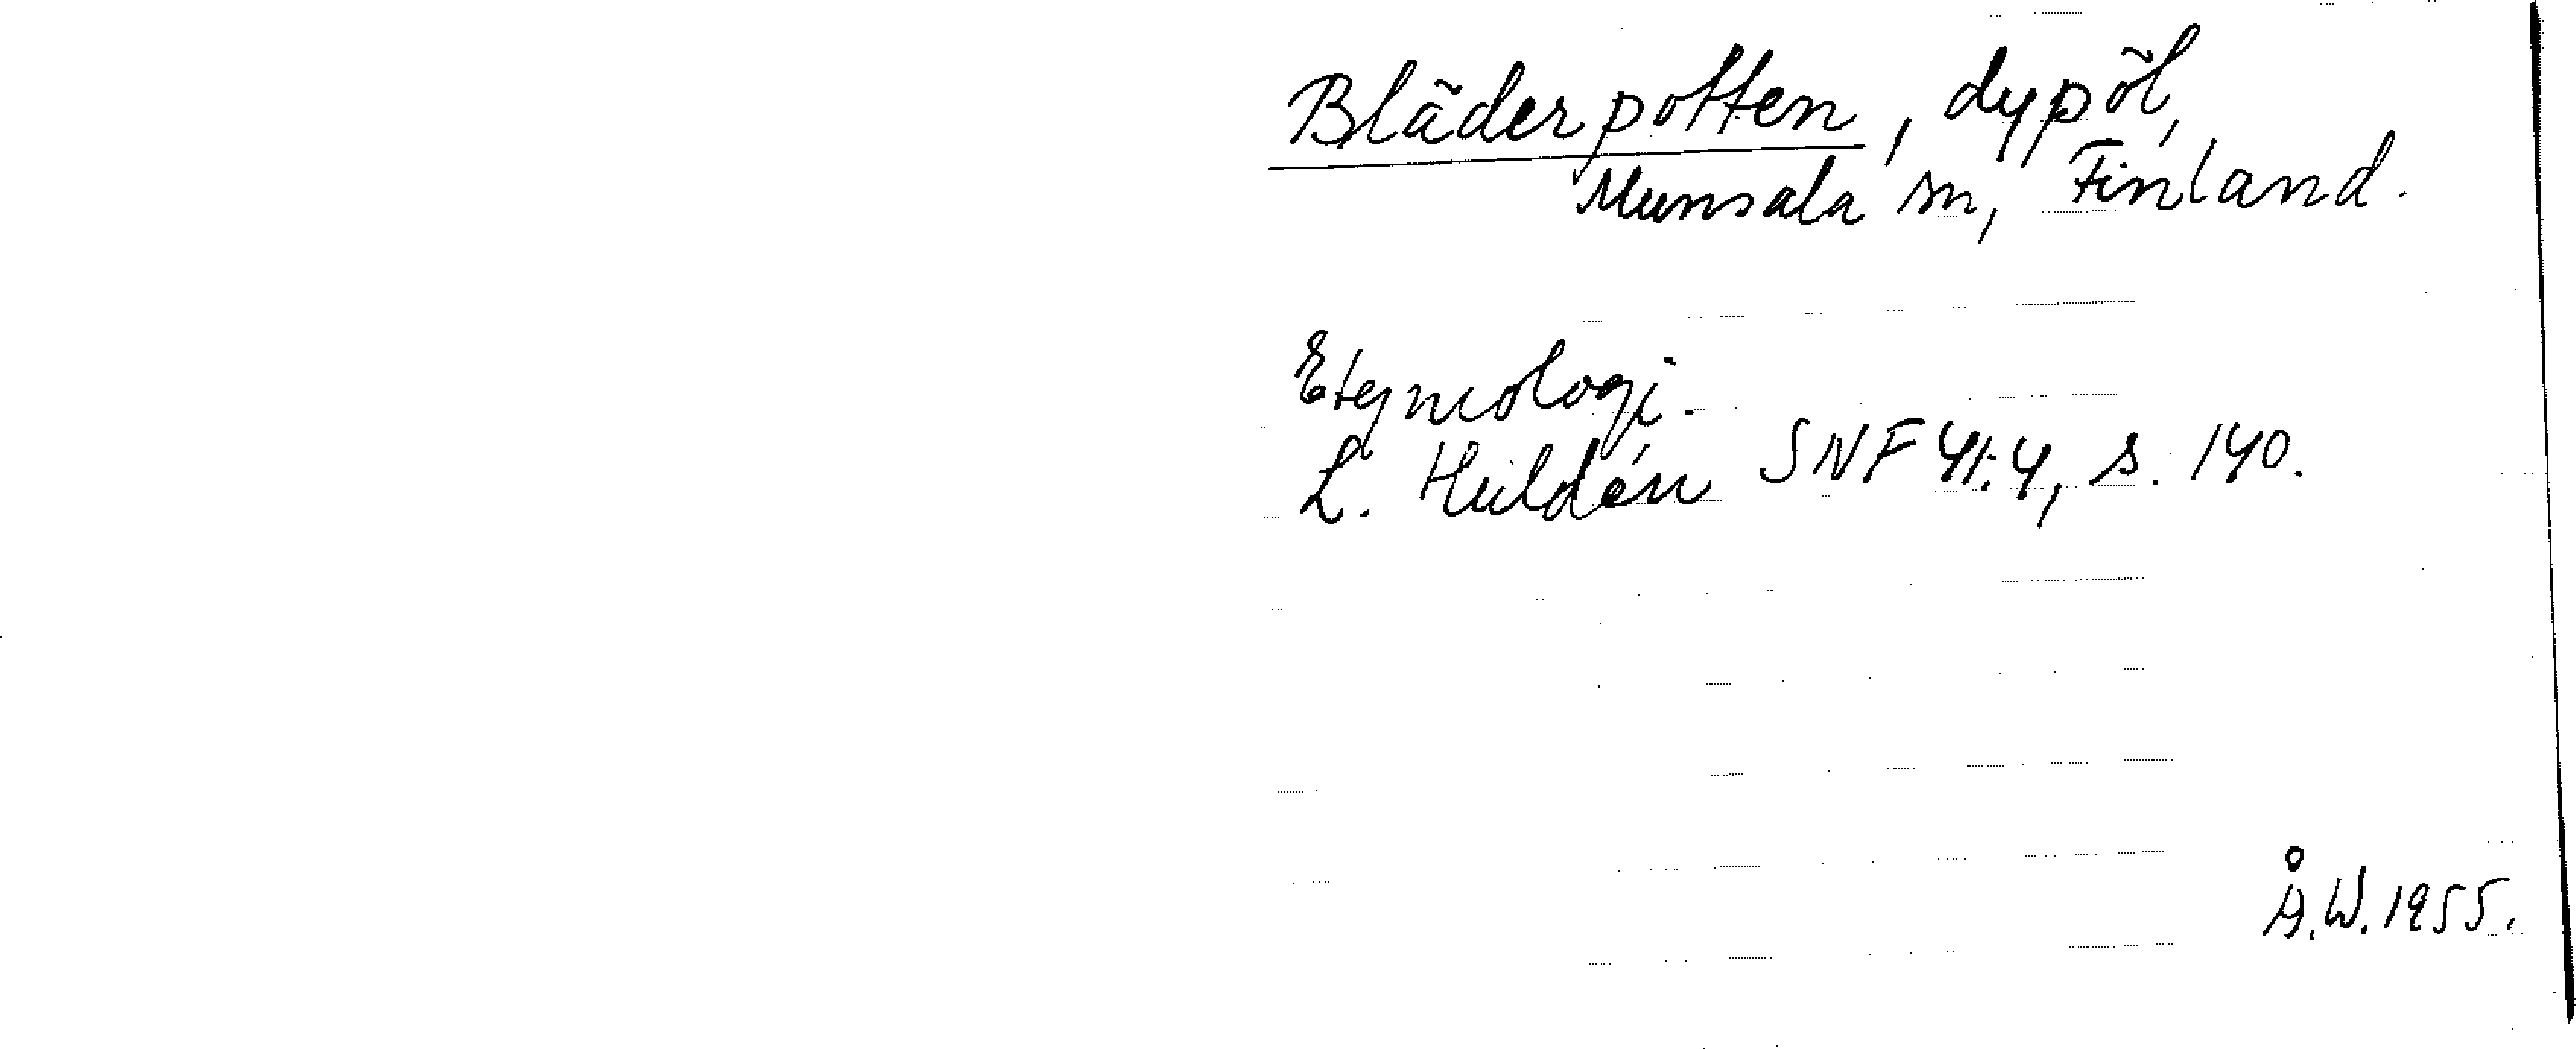 Bläderpotten, dypöl,
Munsala sn, Finland.
Etymologi.
L. Huldén SNF 41:4, s. 140.
Å.W. 1955.